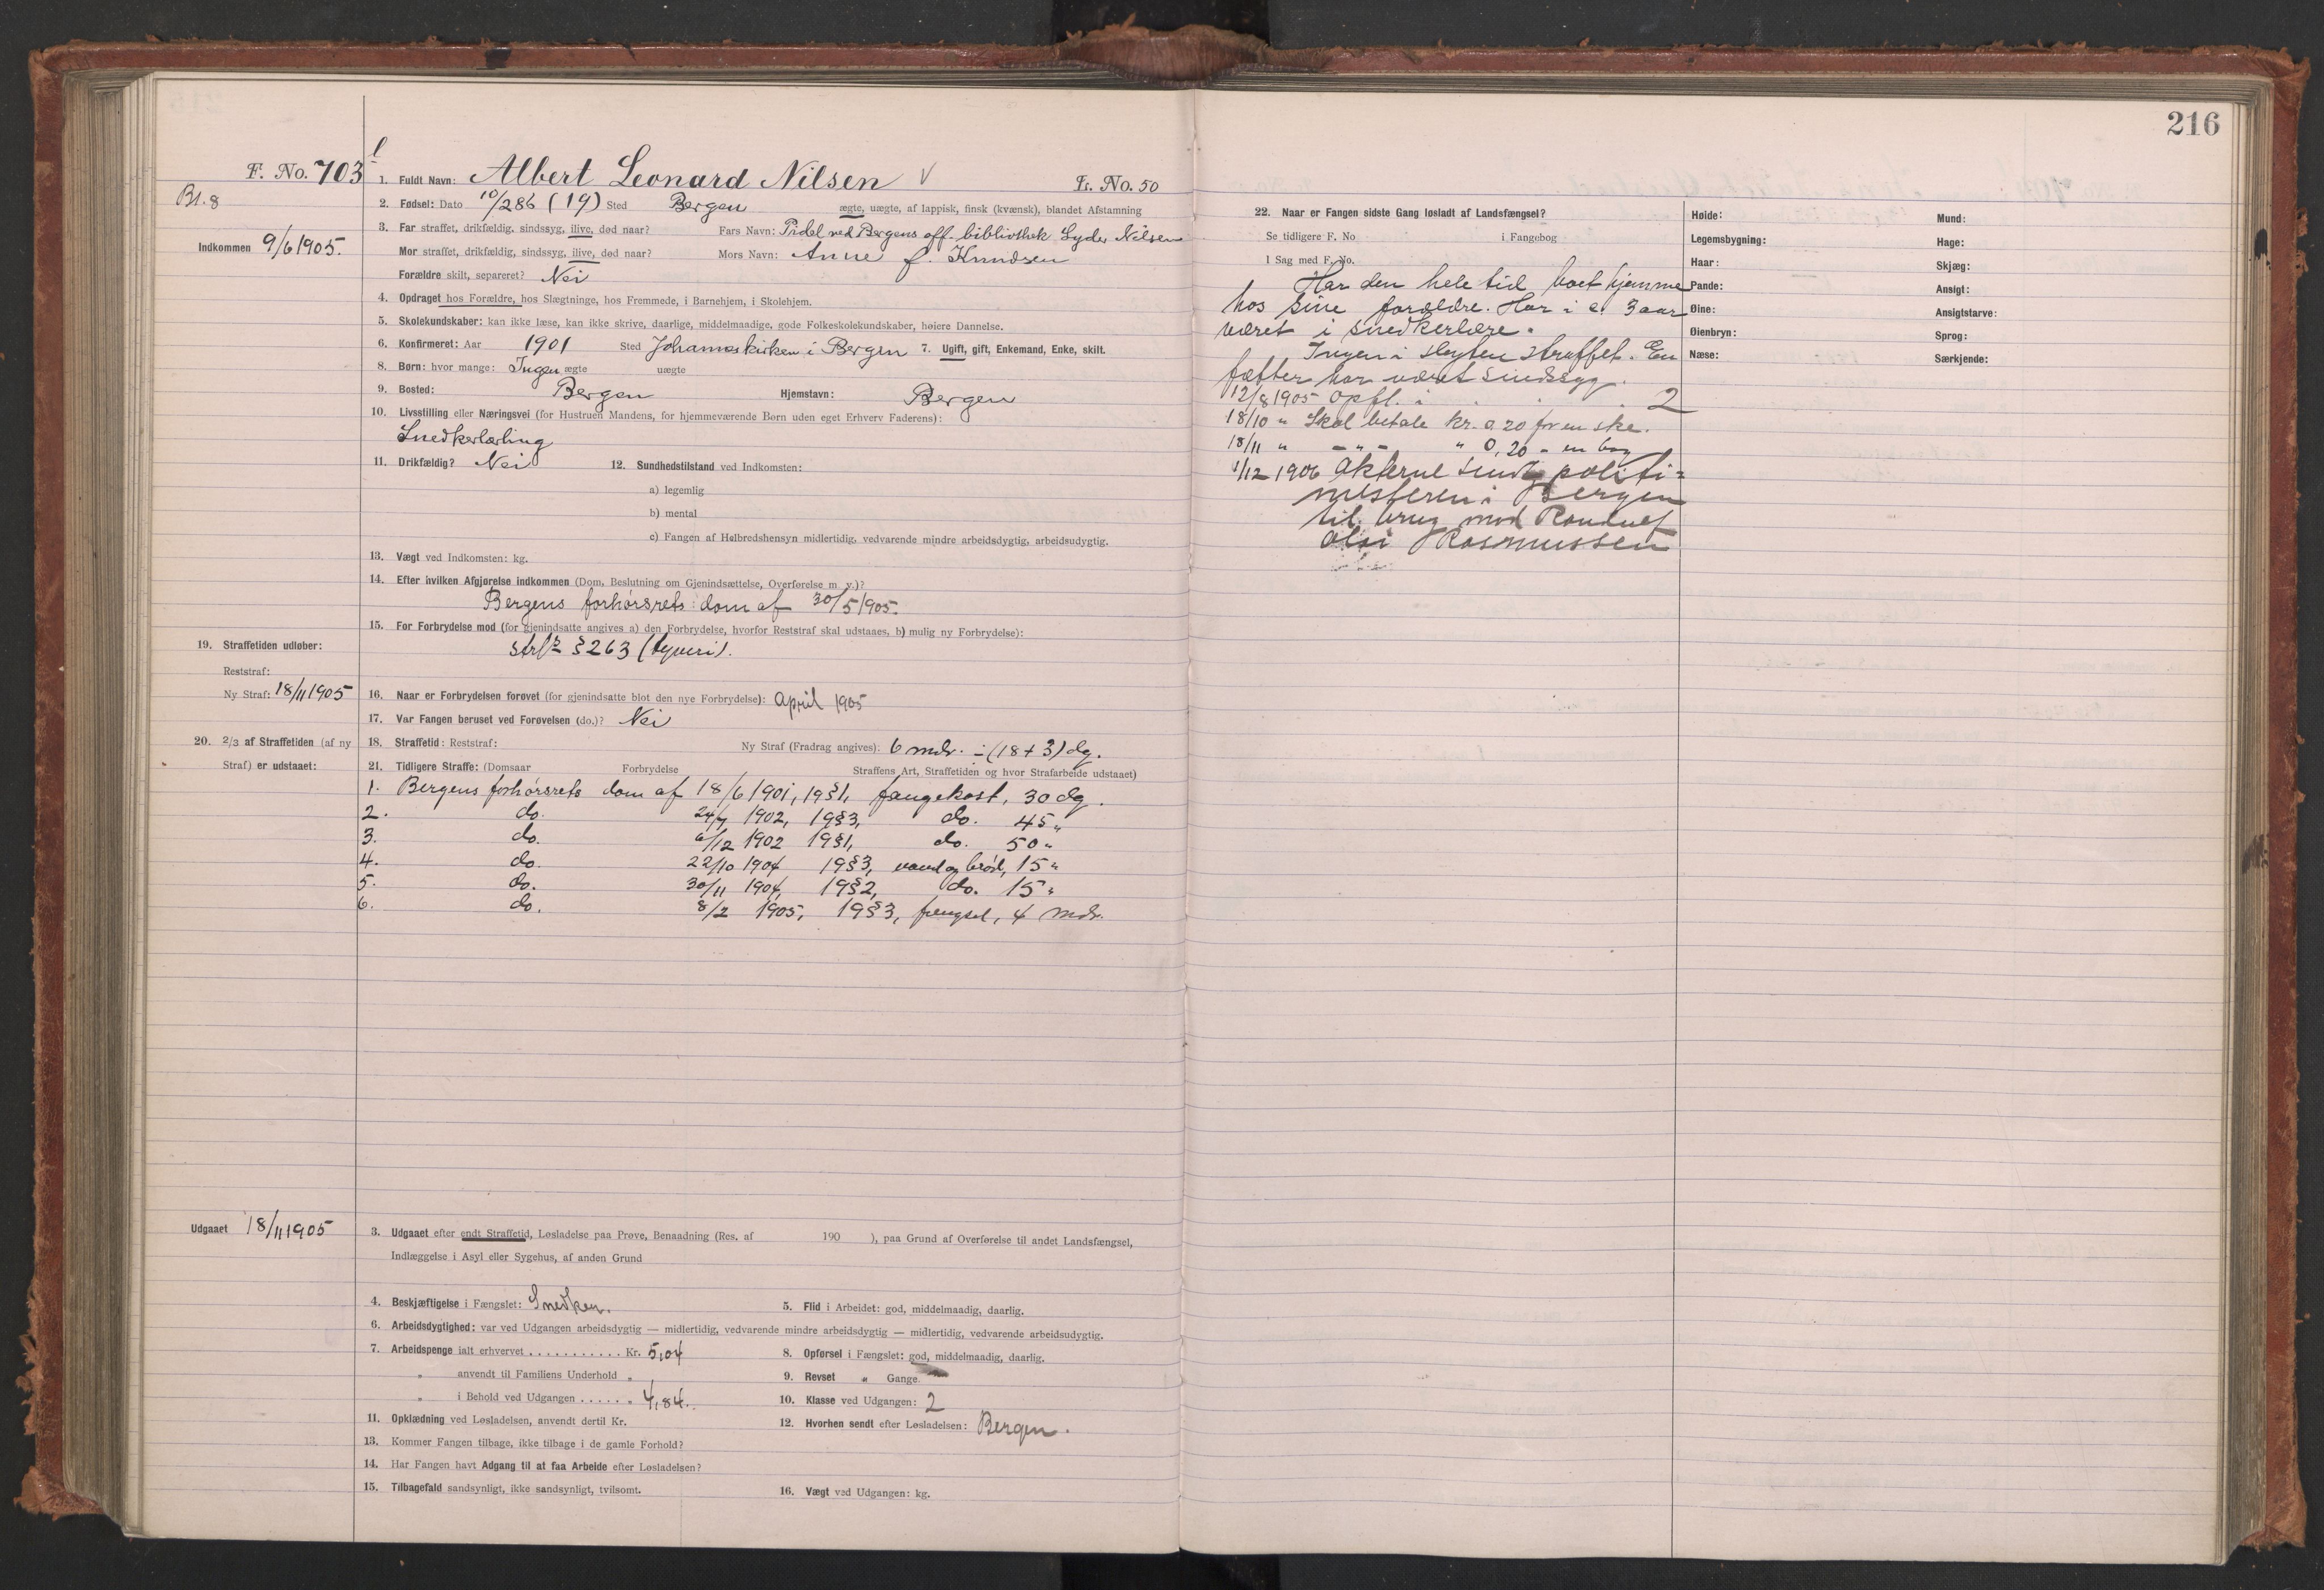 216
F. No. 703
Bl. 8
Indkommen 9/6 1905.
1. Fuldt Navn: Albert Leonard Nilsen V Fr. No. 50
2. Fødsel: Dato 10/2 86 (19) Sted Bergen ægte, uægte, af lappisk, finsk (kvænsk), blandet Afstamning
3. Far straffet, drikfældig, sindssyg, ilive, død naar? Fars Navn: Pedel ved Bergens off. bibliothek Lyder Nilsen
Mor straffet, drikfældig, sindssyg, ilive, død naar? Mors Navn: Anne f. Knudsen
Forældre skilt, separeret? Nei
4. Opdraget hos Forældre, hos Slægtninge, hos Fremmede, i Barnehjem, i Skolehjem.
5. Skolekundskaber: kan ikke læse, kan ikke skrive, daarlige, middelmaadige, gode Folkeskolekundskaber, høiere Dannelse.
6. Konfirmeret: Aar 1901 Sted Johanneskirken i Bergen 7. Ugift, gift, Enkemand, Enke, skilt.
8. Børn: hvor mange: Ingen ægte uægte
9. Bosted: Bergen Hjemstavn: Bergen
10. Livsstilling eller Næringsvei (for Hustruen Mandens, for hjemmeværende Børn uden eget Erhverv Faderens):
Snedkerlærling
11. Drikfældig? Nei 12. Sundhedstilstand ved Indkomsten:
a) legemlig
b) mental
c) Fangen af Helbredshensyn midlertidig, vedvarende mindre arbeidsdygtig, arbeidsudygtig.
13. Vægt ved Indkomsten: kg.
14. Efter hvilken Afgjørelse indkommen (Dom, Beslutning om Gjenindsættelse, Overførelse m. v.)?
Bergens forhørsrets dom af 30/5 1905.
15. For Forbrydelse mod (for gjenindsatte angives a) den Forbrydelse, hvorfor Reststraf skal udstaaes, b) mulig ny Forbrydelse):
§ 263 (tyveri).
19. Straffetiden udløber:
Reststraf:
Ny Straf: 18/11 1905
16. Naar er Forbrydelsen forøvet (for gjenindsatte blot den nye Forbrydelse): April 1905
17. Var Fangen beruset ved Forøvelsen (do.)? Nei
20. 2/3 af Straffetiden (af ny
Straf) er udstaaet:
18. Straffetid: Reststraf: Ny Straf (Fradrag angives): 6 mdr. ÷ (18 + 3) dg.
21. Tidligere Straffe: (Domsaar Forbrydelse Straffens Art, Straffetiden og hvor Strafarbeide udstaaet)
1. Bergens forhørsrets dom af 18/6 1901, 19 § 1, fangekost, 30 dg.
2. do. 24/7 1902, 19 § 3, do. 45 "
3. do. 6/12 1902 19 § 1, do. 50 "
4. do. 22/10 1904 19 § 3, vand og brød, 15 "
5. do. 30/11 1904, 19 § 2, do. 15 "
6. do. 8/2 1905, 19 § 3, fængsel, 4 mdr.
Udgaaet 18/11 1905
3. Udgaaet efter endt Straffetid, Løsladelse paa Prøve, Benaadning (Res. af 190 ), paa Grund af Overførelse til andet Landsfængsel,
Indlæggelse i Asyl eller Sygehus, af anden Grund
4. Beskjæftigelse i Fængslet: Snedker. 5. Flid i Arbeidet: god, middelmaadig, daarlig.
6. Arbeidsdygtighed: var ved Udgangen arbeidsdygtig — midlertidig, vedvarende mindre arbeidsdygtig — midlertidig, vedvarende arbeidsudygtig.
7. Arbeidspenge ialt erhvervet . . . . . . . . . . . Kr. 5,04 8. Opførsel i Fængslet: god, middelmaadig, daarlig.
" anvendt til Familiens Underhold " 9. Revset " Gange.
" i Behold ved Udgangen . . . . . " 4,84. 10. Klasse ved Udgangen: 2
11. Opklædning ved Løsladelsen, anvendt dertil Kr. 12. Hvorhen sendt efter Løsladelsen: Bergen.
13. Kommer Fangen tilbage, ikke tilbage i de gamle Forhold?
14. Har Fangen havt Adgang til at faa Arbeide efter Løsladelsen?
15. Tilbagefald sandsynligt, ikke sandsynligt, tvilsomt. 16. Vægt ved Udgangen: kg.
22. Naar er Fangen sidste Gang løsladt af Landsfængsel?
Se tidligere F. No i Fangebog
I Sag med F. No.
Har den hele tid boet hjemme
hos sine forældre. Har i c. 3 aar
været i snedkerlære.
Ingen i slegten straffet. En
fætter har været sindssyg.
12/8 1905 Opfl. i . . . 2
18/10 " Skal betale kr. 0.20 for en ske.
18/11 " - " - " 0,20 - en bog
1/12 1906 Akterne sendt politi=
mesteren i Bergen
til brug mod
Rasmussen
Høide:
Legemsbygning:
Haar:
Pande:
Øine:
Øienbryn:
Næse:
Mund:
Hage:
Skjæg:
Ansigt:
Ansigtstarve:
Sprog:
Særkjende: